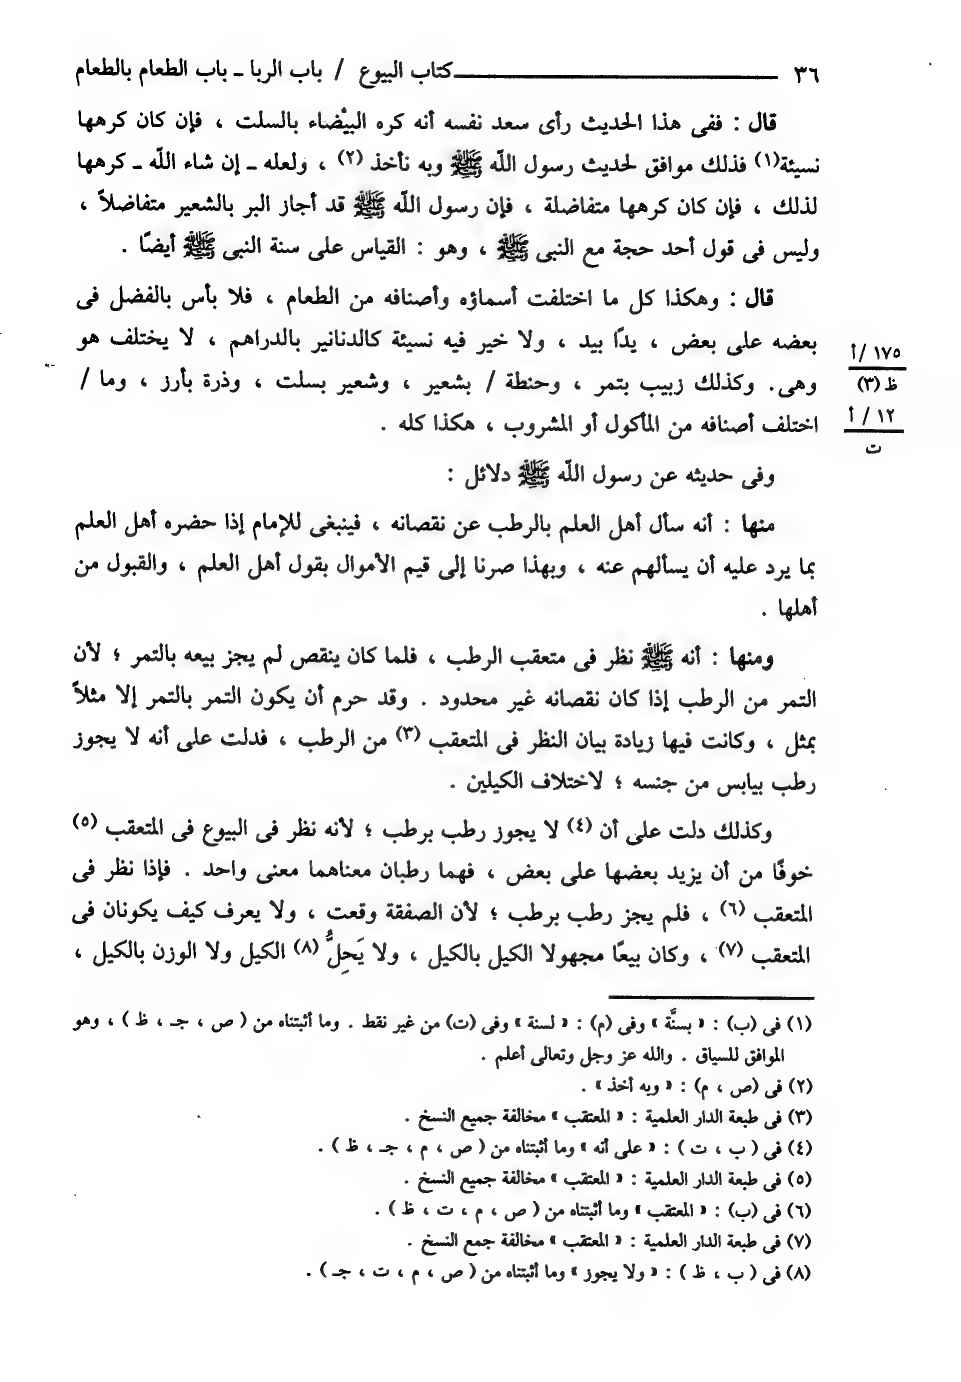 ٣٦ ــــــــــــــــــــ كتاب البيوع / باب الربا ـ باب الطعام بالطعام
قال : ففى هذا الحديث رأى سعد نفسه أنه كره البيْضاء بالسلت ، فإن كان كرهها
نسيئة(١) فذلك موافق لحديث رسول اللّه ﷺ وبه نأخذ (٢) ، ولعله ـ إن شاء اللّه ـ كرهها
لذلك ، فإن كان كرهها متفاضلة ، فإن رسول اللّه ﷺ قد أجاز البر بالشعير متفاضلاً ،
وليس فى قول أحد حجة مع النبى ﷺ ، وهو : القياس على سنة النبى ﷺ أيضًا .
قال : وهكذا كل ما اختلفت أسماؤه وأصنافه من الطعام ، فلا بأس بالفضل فى
بعضه على بعض ، يدًا بيد ، ولا خير فيه نسيئة كالدنانير بالدراهم ، لا يختلف هو
١٧٥ /أ
وهى. وكذلك زبيب بتمر ، وحنطة / بشعير ، وشعير بسلت ، وذرة بأرز ، وما /
ظ (٣)
اختلف أصنافه من المأكول أو المشروب ، هكذا كله .
١٢ / أ
ت
وفى حديثه عن رسول اللّه ﷺ دلائل :
منها : أنه سأل أهل العلم بالرطب عن نقصانه ، فينبغى للإمام إذا حضره أهل العلم
بما يرد عليه أن يسألهم عنه ، وبهذا صرنا إلى قيم الأموال بقول أهل العلم ، والقبول من
أهلها .
ومنها : أنه ﷺ نظر فى متعقب الرطب ، فلما كان ينقص لم يجز بيعه بالتمر ؛ لأن
التمر من الرطب إذا كان نقصانه غير محدود . وقد حرم أن يكون التمر بالتمر إلا مثلاً
بمثل ، وكانت فيها زيادة بيان النظر فى المتعقب (٣) من الرطب ، فدلت على أنه لا يجوز
رطب بيابس من جنسه ؛ لاختلاف الكيلين .
وكذلك دلت على أن (٤) لا يجوز رطب برطب ؛ لأنه نظر فى البيوع فى المتعقب (٥)
خوفًا من أن يزيد بعضها على بعض ، فهما رطبان معناهما معنى واحد . فإذا نظر فى
المتعقب (٦) ، فلم يجز رطب برطب ؛ لأن الصفقة وقعت ، ولا يعرف كيف يكونان فى
المتعقب (٧) ، وكان بيعًا مجهولا الكيل بالكيل ، ولا يَحِلُّ (٨) الكيل ولا الوزن بالكيل ،
(١) فى (ب) : « بسنَّة » وفى (م) : « لسنة » وفى (ت) من غير نقط . وما أثبتناه من ( ص ، جـ ، ظ ) ، وهو
الموافق للسياق . والله عز وجل وتعالى أعلم .
(٢) فى (ص ، م) : « وبه أخذ » .
(٣) فى طبعة الدار العلمية : « المعتقب » مخالفة جميع النسخ .
(٤) فى ( ب ، ت ) : « على أنه » وما أثبتناه من ( ص ، م ، جـ ، ظ ) .
(٥) فى طبعة الدار العلمية : « المعتقب » مخالفة جميع النسخ .
(٦) فى (ب) : « المعتقب » وما أثبتناه من ( ص ، م ، ت ، ظ ) .
(٧) فى طبعة الدار العلمية : « المعتقب » مخالفة جمع النسخ .
(٨) فى ( ب ، ظ ) : « ولا يجوز » وما أثبتناه من ( ص ، م ، ت ، جـ ) .